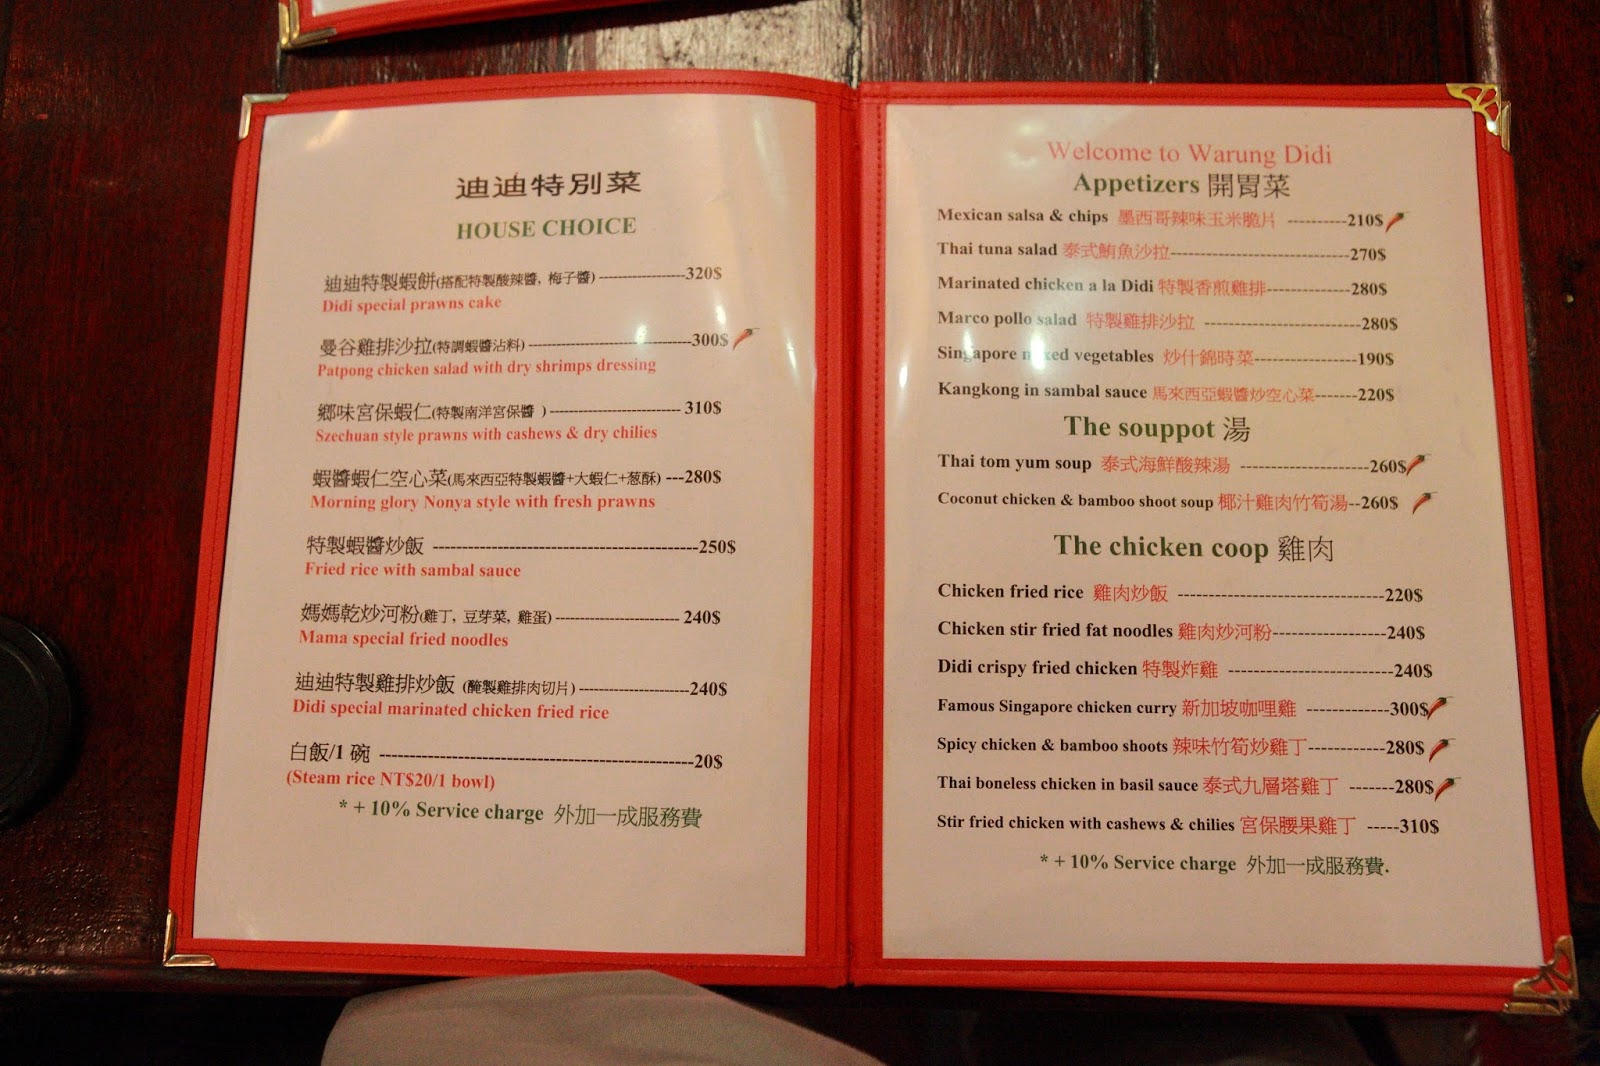 迪迪特別菜
HOUSE CHOICE
迪迪特製蝦餅(搭配特製酸辣醬, 梅子醬) ------------------320$
Didi special prawns cake
曼谷雞排沙拉(特調蝦醬沾料) -----------------------------------300$
Patpong chicken salad with dry shrimps dressing
鄉味宮保蝦仁(特製南洋宮保醬 ) --------------------------- 310$
Szechuan style prawns with cashews & dry chilies
蝦醬蝦仁空心菜(馬來西亞特製蝦醬+大蝦仁+葱酥) ---280$
Morning glory Nonya style with fresh prawns
特製蝦醬炒飯 ---------------------------------------------250$
Fried rice with sambal sauce
媽媽乾炒河粉(雞丁, 豆芽菜, 雞蛋) -------------------------- 240$
Mama special fried noodles
迪迪特製雞排炒飯 (醃製雞排肉切片) -----------------------240$
Didi special marinated chicken fried rice
白飯/1 碗 ----------------------------------------------------------20$
(Steam rice NT$20/1 bowl)
* + 10% Service charge 外加一成服務費
Welcome to Warung Didi
Appetizers 開胃菜
Mexican salsa & chips 墨西哥辣味玉米脆片 ----------210$
Thai tuna salad 泰式鮪魚沙拉------------------------------270$
Marinated chicken a la Didi 特製香煎雞排--------------280$
Marco pollo salad 特製雞排沙拉 --------------------------280$
Singapore mixed vegetables 炒什錦時菜-----------------190$
Kangkong in sambal sauce 馬來西亞蝦醬炒空心菜-------220$
The souppot 湯
Thai tom yum soup 泰式海鮮酸辣湯 ----------------------260$
Coconut chicken & bamboo shoot soup 椰汁雞肉竹筍湯--260$
The chicken coop 雞肉
Chicken fried rice 雞肉炒飯 -----------------------------------220$
Chicken stir fried fat noodles 雞肉炒河粉-------------------240$
Didi crispy fried chicken 特製炸雞 ----------------------------240$
Famous Singapore chicken curry 新加坡咖哩雞 --------------300$
Spicy chicken & bamboo shoots 辣味竹筍炒雞丁-------------280$
Thai boneless chicken in basil sauce 泰式九層塔雞丁 -------280$
Stir fried chicken with cashews & chilies 宮保腰果雞丁 -----310$
* + 10% Service charge 外加一成服務費.